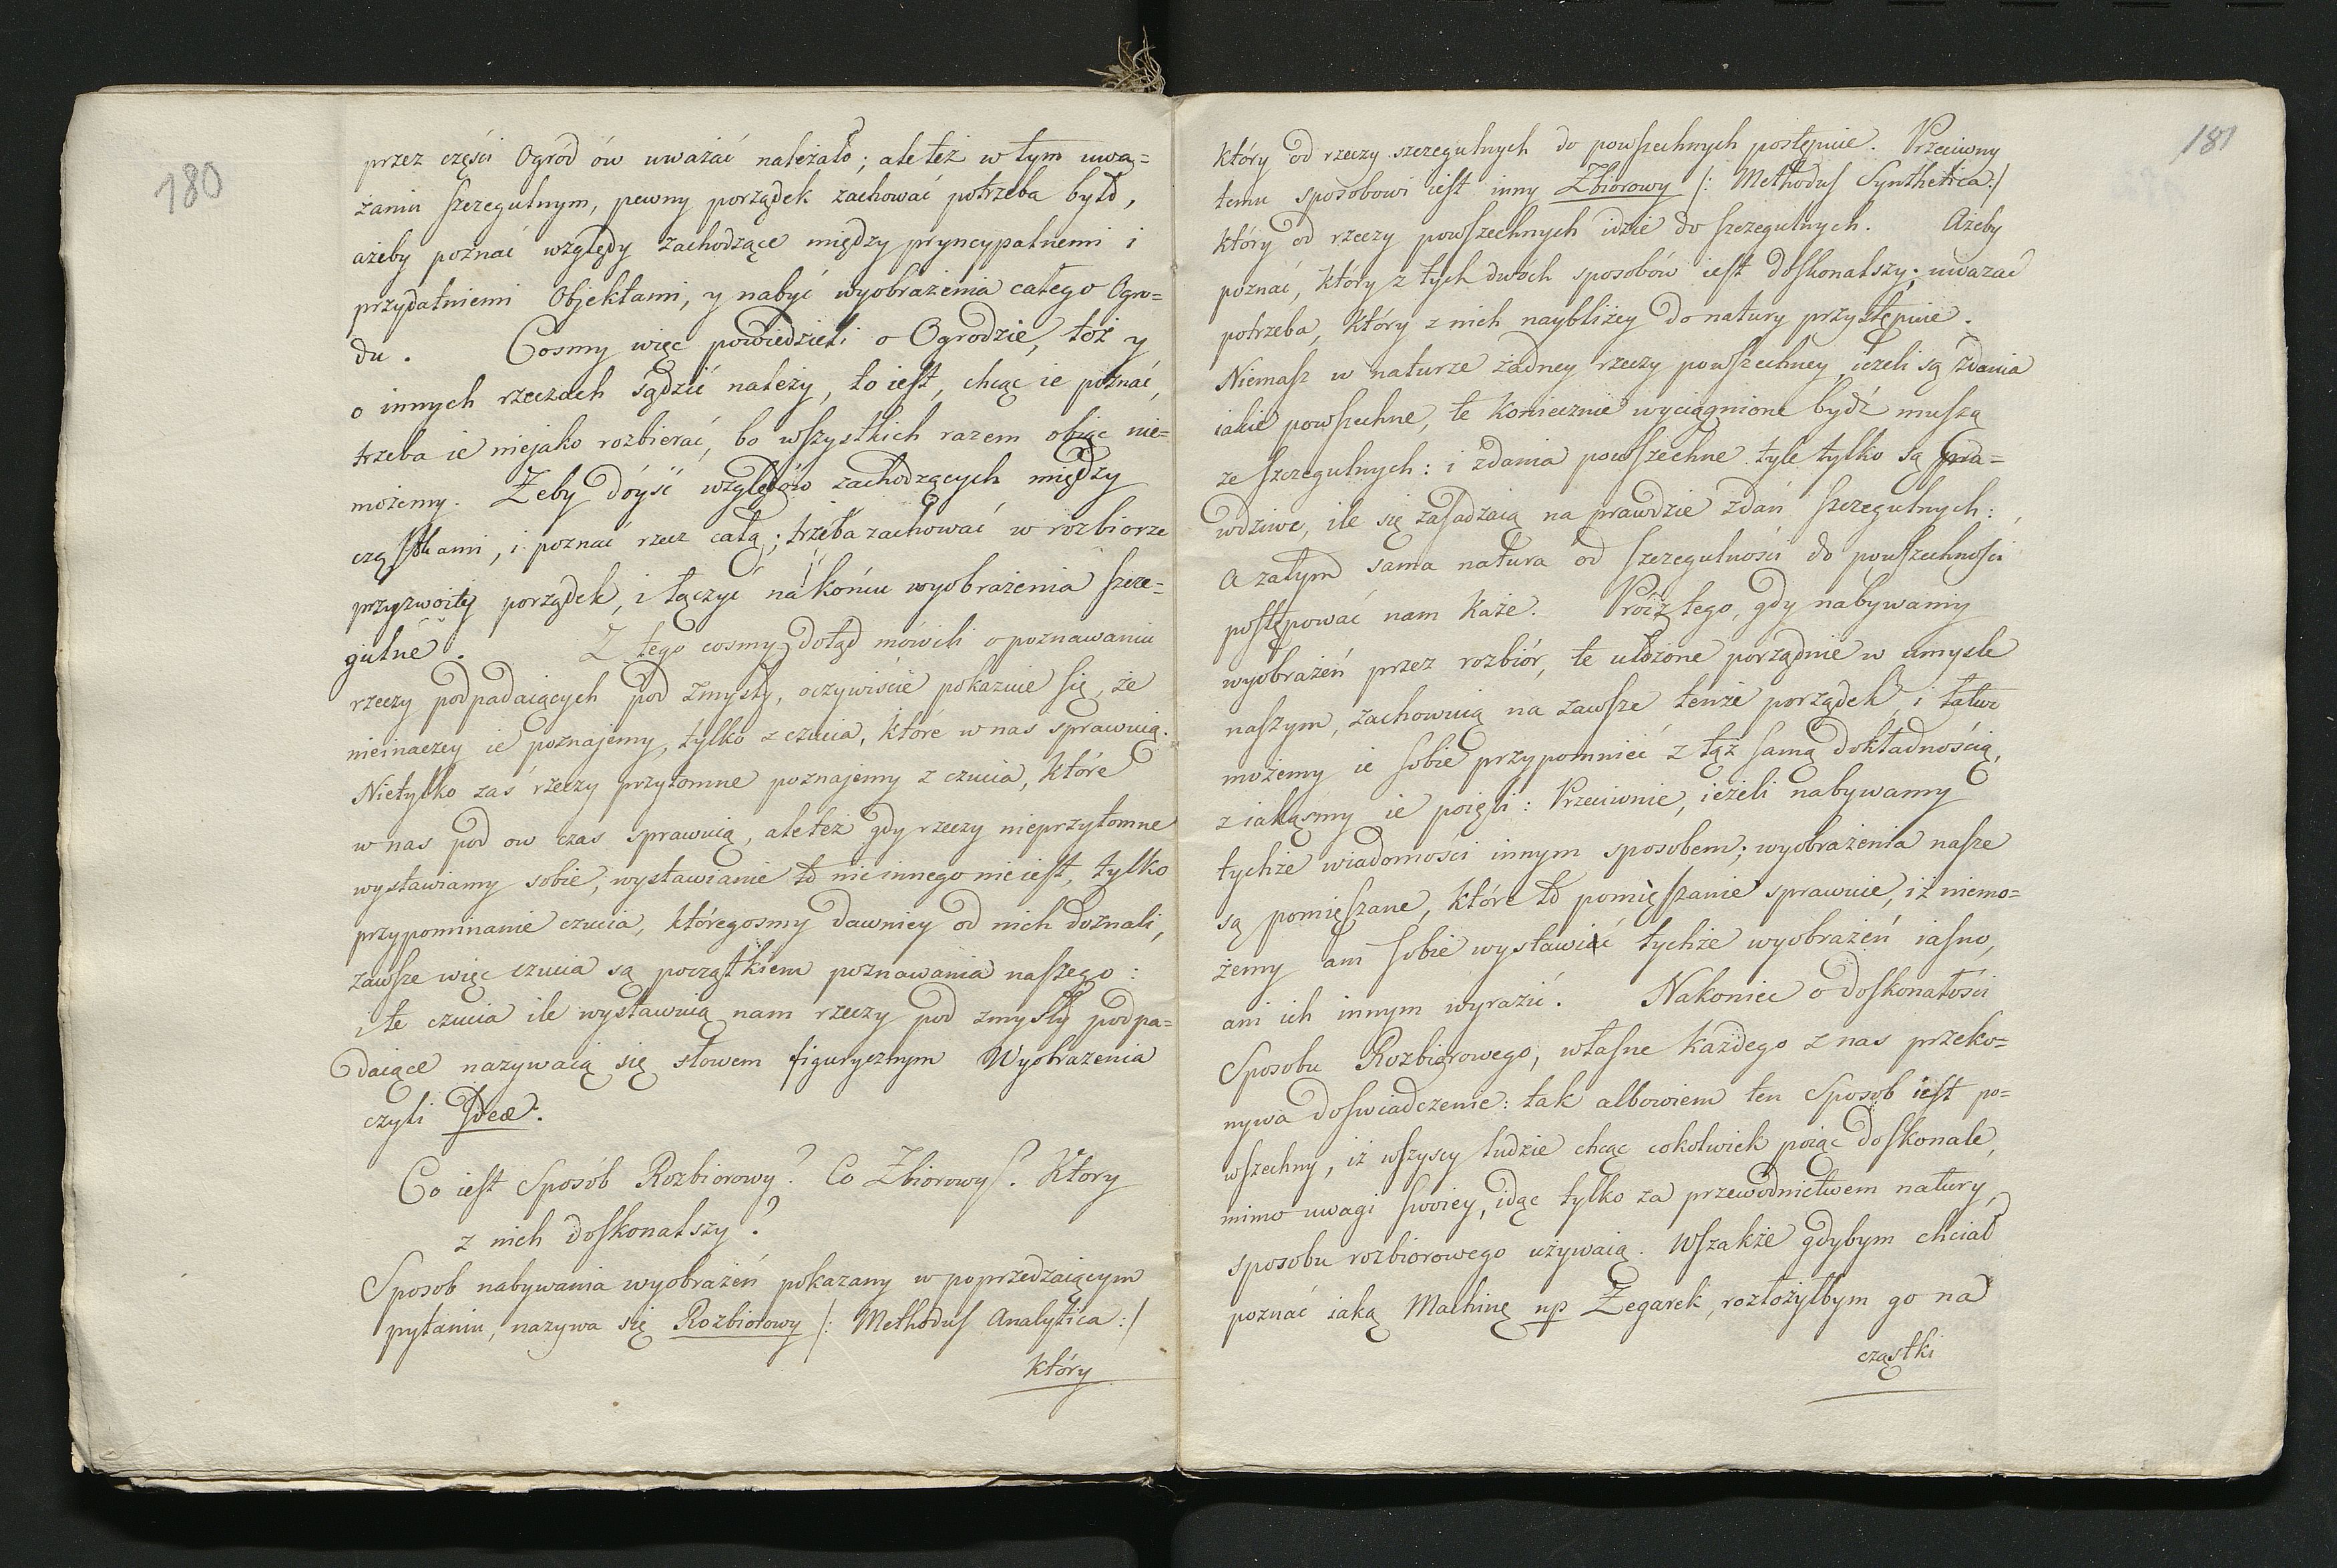 180
przez części Ogród ów uważać należało; ale też w tym uwa=
żaniu szczegulnym, pewny porządek zachować potrzeba było,
ażeby poznać względy zachodzące między pryncypalnemi i
przydatniemi Objektami, y nabyć wyobrażenia całego Ogro=
du. Cosmy więc powiedzieli o Ogrodzie, toż y
o innych rzeczach sądzić należy, to iest, chcąc ie poznać,
trzeba ie niejako rozbierać, bo wszystkich razem obiąc nie=
możemy. Żeby dóyść względów zachodzących między
cząstkami, i poznać rzecz całą; trzeba zachować w rozbiorze
przyzwoity porządek, i łączyć na końcu wyobrażenia szcze=
gulne. Z tego cosmy dotąd mówili o poznawaniu
rzeczy podpadaiących pod zmysły, oczywiście pokazuie się, że
nieinaczey ie poznajemy, tylko z czucia, które w nas sprawuią.
Nietylko zaś rzeczy przytomne poznajemy z czucia, które
w nas pod ow czas sprawuią, ale też gdy rzeczy nieprzytomne
wystawiamy sobie; wystawianie to nic innego nie iest, tylko
przypominanie czucia, któregosmy dawniey od nich doznali,
zawsze więc czucia są początkiem poznawania naszego:
i te czucia ile wystawuią nam rzeczy pod zmysły podpa=
daiące nazywaią się słowem figurycznym Wyobrażenia
czyli Ideæ.
Co iest Sposób Rozbiorowy? Co Zbiorowy? Który
z nich doskonalszy?
Sposob nabywania wyobrażeń pokazany w poprzedzaiącym
pytaniu, nazywa się Rozbiorowy /: Methodus Analytica :/
Który
181
Który od rzeczy szczegulnych do powszechnych postępuie. Przeciwny
temu sposobowi iest inny Zbiorowy /: Methodus Synthetica :/
Który od rzeczy powszechnych idzie do szczegulnych. Ażeby
poznać, który z tych dwóch sposobów iest doskonalszy; uważać
potrzeba, który z nich naybliżey do natury przystępuie.
Niemasz w naturze żadney rzeczy powszechney, ieżeli są zdania
iakie powszechne, te koniecznie wyciągnione bydź muszą
ze szczegulnych: i zdania powszechne tyle tylko są pra=
wdziwe, ile się zasadzaią na prawdzie zdań szczegulnych:
a zatym sama natura od szczegulności do powszechności
postępować nam każe. Prócz tego, gdy nabywamy
wyobrażeń przez rozbiór, te ułożone porządnie w umysle
naszym, zachowuią na zawsze tenże porządek, i łatwo
możemy ie sobie przypomnieć z tąż samą dokładnością,
z iakąsmy ie poięli: Przeciwnie, ieżeli nabywamy
tychże wiadomości innym sposobem; wyobrażenia nasze
są pomięszane, które to pomięszanie sprawuie, iż niemo=
żemy ani sobie wystawić tychże wyobrażeń iasno,
ani ich innym wyrazić. Nakoniec o doskonałości
Sposobu Rozbiorowego, własne każdego z nas przeko=
nywa doświadczenie: tak albowiem ten Sposob iest po=
wszechny, iż wszyscy ludzie chcąc cokolwiek poiąc doskonale,
mimo uwagi swoiey, idąc tylko za przewodnictwem natury,
sposobu rozbiorowego używaią. Wszakże gdybym chciał
poznać iaką Machinę np Zegarek, rozłożyłbym go na
cząstki